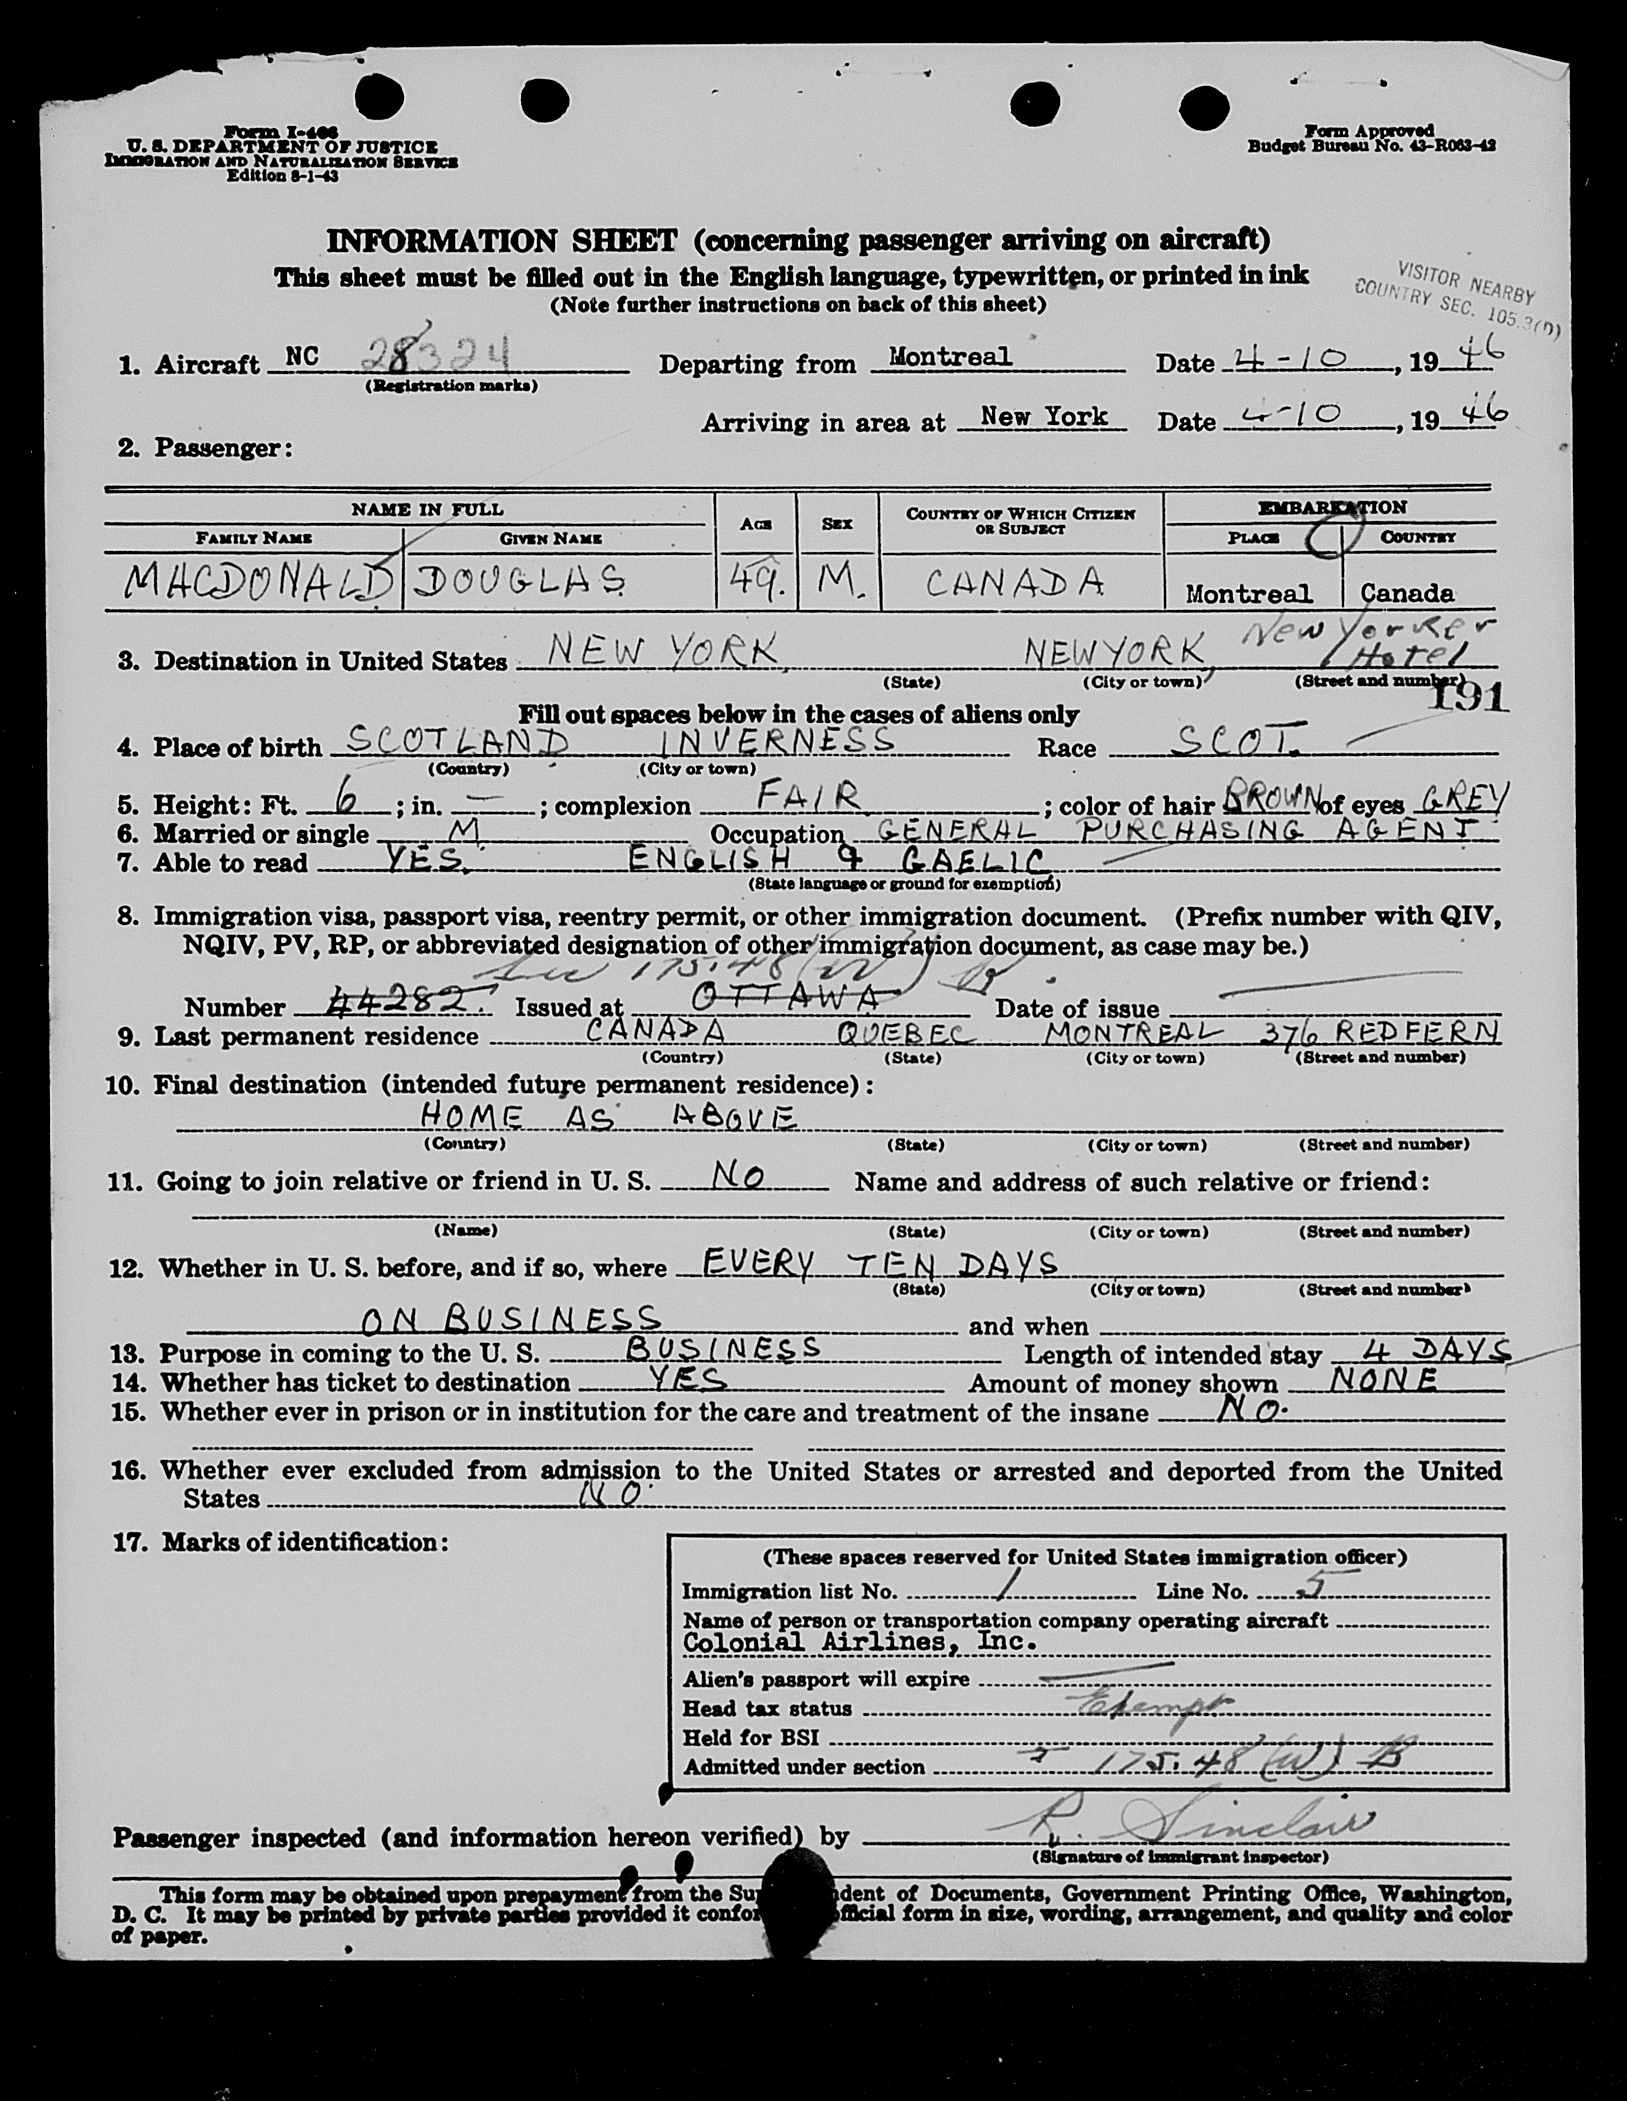 Form I-466
U. S. DEPARTMENT OF JUSTICE
IMMIGRATION AND NATURALIZATION SERVICE
Edition 8-1-43
Form Approved
Budget Bureau No. 43-R063-42
INFORMATION SHEET (concerning passenger arriving on aircraft)
This sheet must be filled out in the English language, typewritten, or printed in ink
(Note further instructions on back of this sheet)
VISITOR NEARBY
COUNTRY SEC. 105.3(D)
1. Aircraft NC 28324 Departing from Montreal Date 4-10, 1946
(Registration marks)
Arriving in area at New York Date 4-10, 1946
2. Passenger:
NAME IN FULL AGE SEX COUNTRY OF WHICH CITIZEN OR SUBJECT EMBARKATION
FAMILY NAME GIVEN NAME PLACE COUNTRY
MACDONALD DOUGLAS 49. M. CANADA Montreal Canada
3. Destination in United States NEW YORK, NEW YORK, New Yorker Hotel
(State) (City or town) (Street and number)
191
Fill out spaces below in the cases of aliens only
4. Place of birth SCOTLAND INVERNESS Race SCOT.
(Country) (City or town)
5. Height: Ft. 6; in. —; complexion FAIR; color of hair BROWN of eyes GREY
6. Married or single M Occupation GENERAL PURCHASING AGENT
7. Able to read YES. ENGLISH & GAELIC
(State language or ground for exemption)
8. Immigration visa, passport visa, reentry permit, or other immigration document. (Prefix number with QIV,
NQIV, PV, RP, or abbreviated designation of other immigration document, as case may be.)
Sec 175.48
Number 44282. Issued at OTTAWA Date of issue
9. Last permanent residence CANADA QUEBEC MONTREAL 376 REDFERN
(Country) (State) (City or town) (Street and number)
10. Final destination (intended future permanent residence):
HOME AS ABOVE
(Country) (State) (City or town) (Street and number)
11. Going to join relative or friend in U. S. NO Name and address of such relative or friend:
(Name) (State) (City or town) (Street and number)
12. Whether in U. S. before, and if so, where EVERY TEN DAYS
(State) (City or town) (Street and number)
ON BUSINESS and when
13. Purpose in coming to the U. S. BUSINESS Length of intended stay 4 DAYS
14. Whether has ticket to destination YES Amount of money shown NONE
15. Whether ever in prison or in institution for the care and treatment of the insane NO.
16. Whether ever excluded from admission to the United States or arrested and deported from the United
States NO.
17. Marks of identification:
(These spaces reserved for United States immigration officer)
Immigration list No. 1 Line No. 5
Name of person or transportation company operating aircraft
Colonial Airlines, Inc.
Alien's passport will expire —
Head tax status Exempt
Held for BSI
Admitted under section 175.48 (W) B
Passenger inspected (and information hereon verified) by R. Sinclair
(Signature of immigrant inspector)
This form may be obtained upon prepayment from the Su dent of Documents, Government Printing Office, Washington,
D. C. It may be printed by private parties provided it confor fficial form in size, wording, arrangement, and quality and color
of paper.